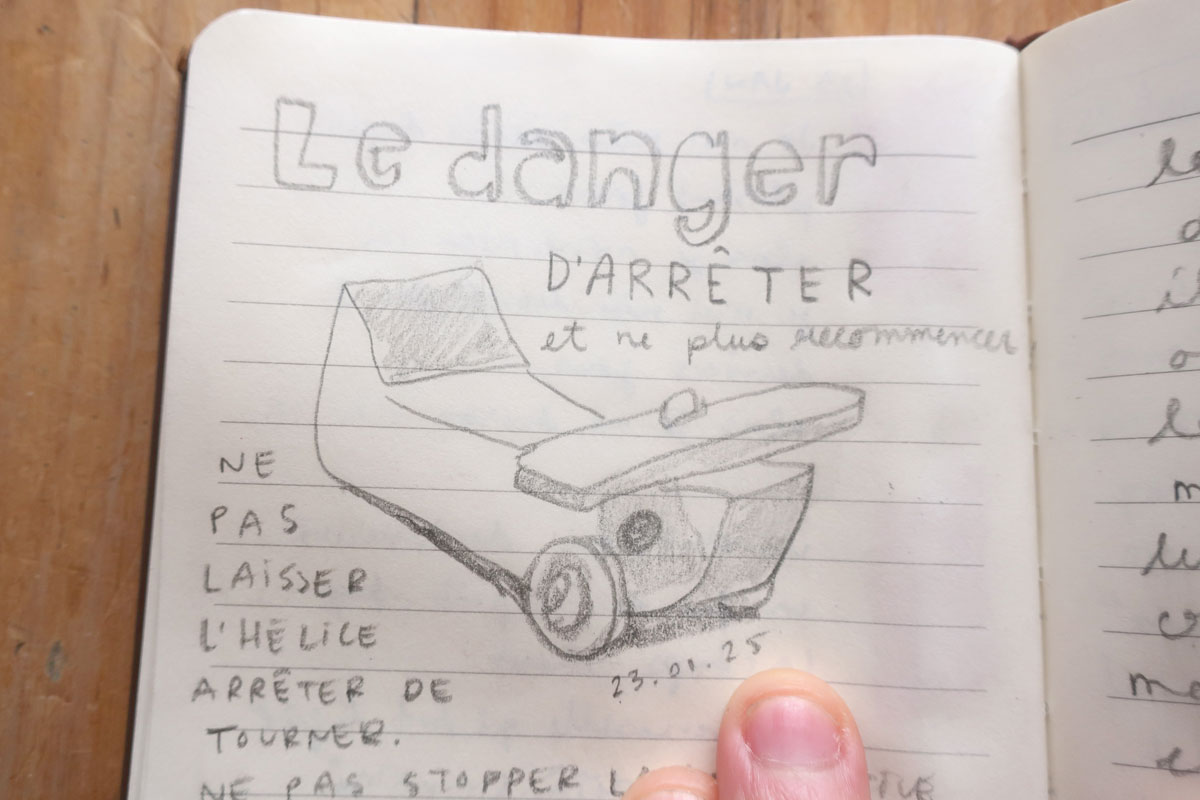 Le danger
D'ARRÊTER
et ne plus recommencer
NE
PAS
LAiSSER
L'HÉLiCE
ARRÊTER DE
TOURNER.
23.01.25
NE PAS STOPPER